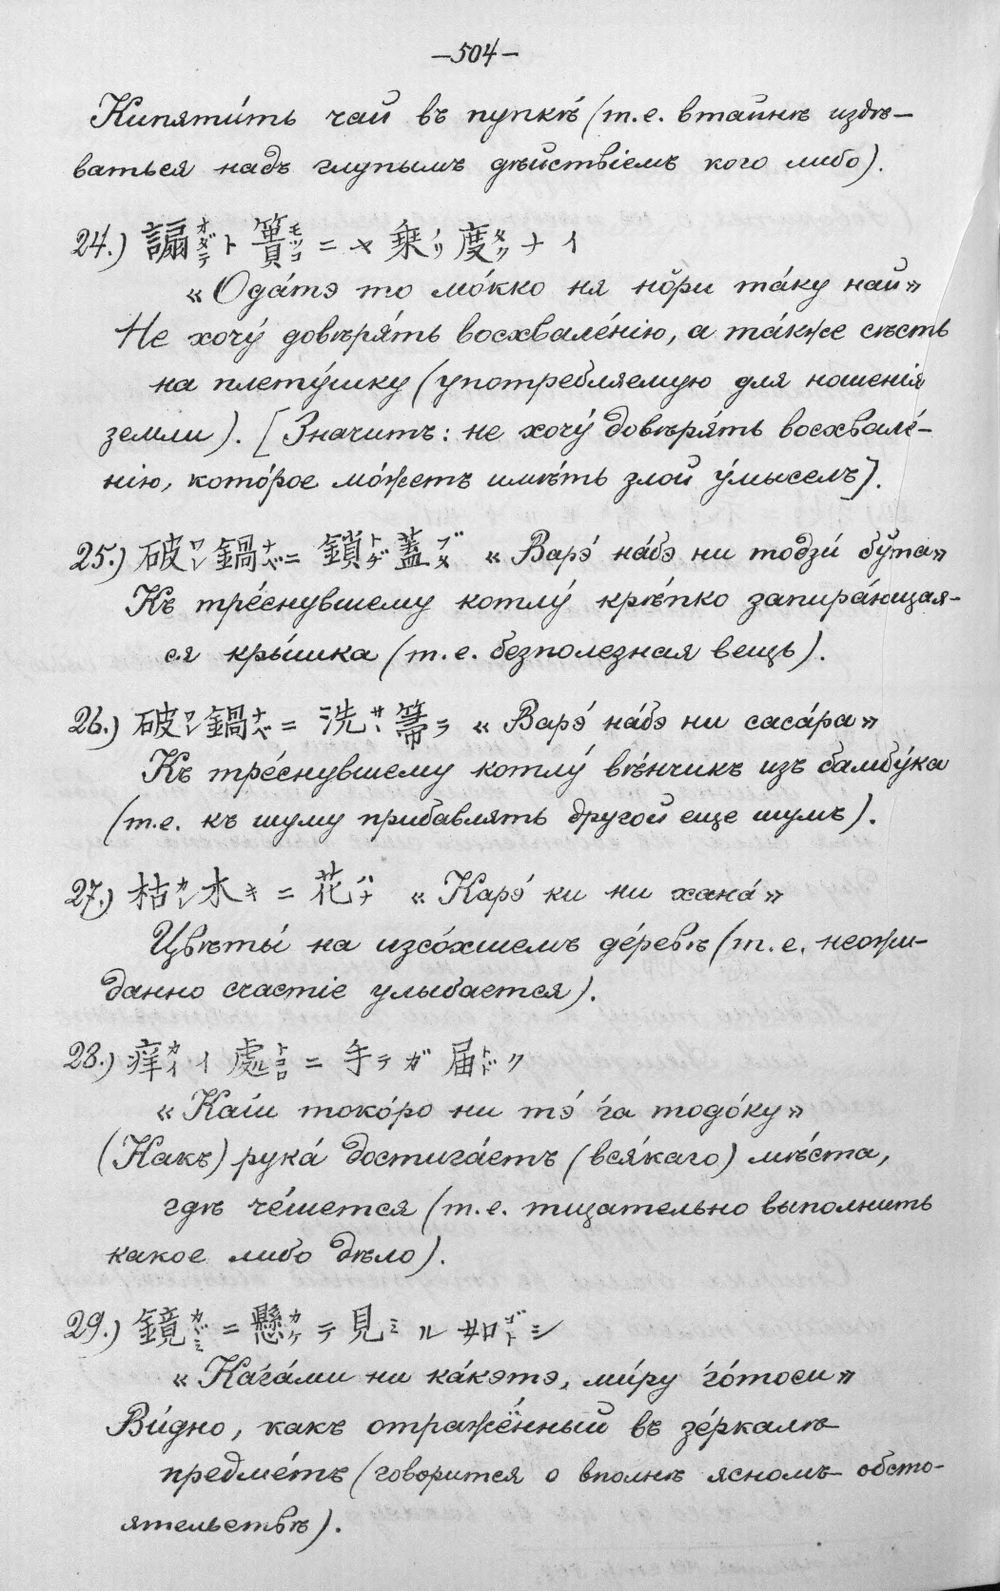 —504—
Кипяти́ть чай въ пупкѣ (т.е. втайнѣ издѣ-
ваться надъ глупымъ дѣйствіемъ кого либо).
24.) 諞オダテト簣モッコ=メ乗ノリ度タクナイ
«Ода́тэ то мо́кко ня но̆ри та́ку най»
Не хочу́ довѣря́ть восхвале́нію, а та́кже сѣсть
на плету́шку (употребляемую для ношенія
земли). [Значитъ: не хочу́ довѣря́ть восхвале́-
нію, кото́рое мо́жетъ имѣ́ть злой у́мыселъ].
25.) 破ワレ鍋ナベ= 鎖トヂ蓋ブタ «Варэ́ на́бэ ни тодзи́ бўта»
Къ тре́снувшему котлу́ крѣ́пко запира́ющая-
ся кры́шка (т.е. безполезная вещь).
26.) 破ワレ鍋ナベ= 洗サヽ箒ラ «Варэ́ на́бэ ни саса́ра»
Къ тре́снувшему котлу́ вѣ́нчикъ изъ бамбу́ка
(т.е. къ шуму прибавлять другой еще шумъ).
27.) 枯カレ木キ = 花ハナ «Карэ́ ки ни хана́»
Цвѣты́ на изсо́хшемъ де́ревѣ (т.е. неожи-
данно счастіе улыбается).
28.) 痒カイイ 處トコロ = 手テガ 届トドク
«Каі́и токо́ро ни тэ́ ѓа тодо́ку»
(Какъ) рука́ достига́етъ (вся́каго) мѣ́ста,
гдѣ че́шется (т.е. тщательно выполнить
какое либо дѣло).
29.) 鏡カヾミ=懸カケテ見ミル如ゴトシ
«Каѓа́ми ни ка́кэтэ, ми́ру ѓо́тоси»
Ви́дно, какъ отраже́нный въ зе́ркалѣ
предме́тъ (говорится о вполнѣ ясномъ обсто-
ятельствѣ).